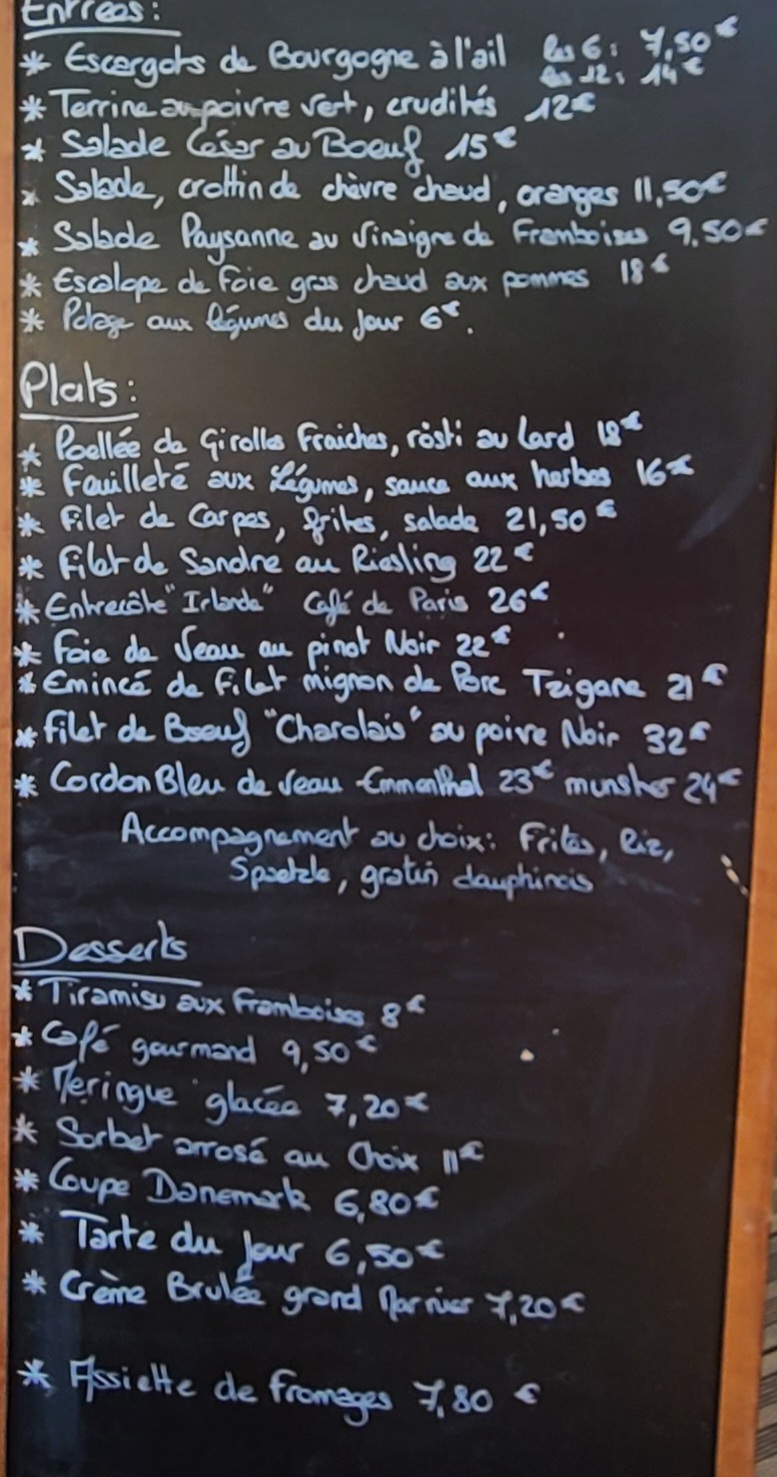 Entrées:
* Escargots de Bourgogne à l'ail les 6: 7,50€
les 12: 14€
* Terrine au poivre vert, crudités 12€
* Salade César au Boeuf 15€
* Salade, crottin de chèvre chaud, oranges 11,50€
* Salade Paysanne au Vinaigre de Framboises 9,50€
* Escalope de Foie gras chaud aux pommes 18€
* Potage aux légumes du Jour 6€.
Plats:
* Poellée de Girolles Fraiches, rösti au Lard 18€
* Feuilleté aux Légumes, sauce aux herbes 16€
* Filet de Carpes, frites, salade 21,50€
* Filet de Sandre au Riesling 22€
* Entrecôte "Irlande" Café de Paris 26€
* Foie de Veau au pinot Noir 22€
* Emincé de Filet mignon de Porc Tzigane 21€
* Filet de Boeuf "Charolais" au poivre Noir 32€
* Cordon Bleu de veau Emmenthal 23€ munster 24€
Accompagnement au choix: Frites, Riz,
Spaetzle, gratin dauphinois
Desserts
* Tiramisu aux Framboises 8€
* Café gourmand 9,50€
* Meringue glacée 7,20€
* Sorbet arrosé au Choix 11€
* Coupe Danemark 6,80€
* Tarte du Jour 6,50€
* Crème Brulée grand Marnier 7,20€
* Assiette de fromages 7,80 €